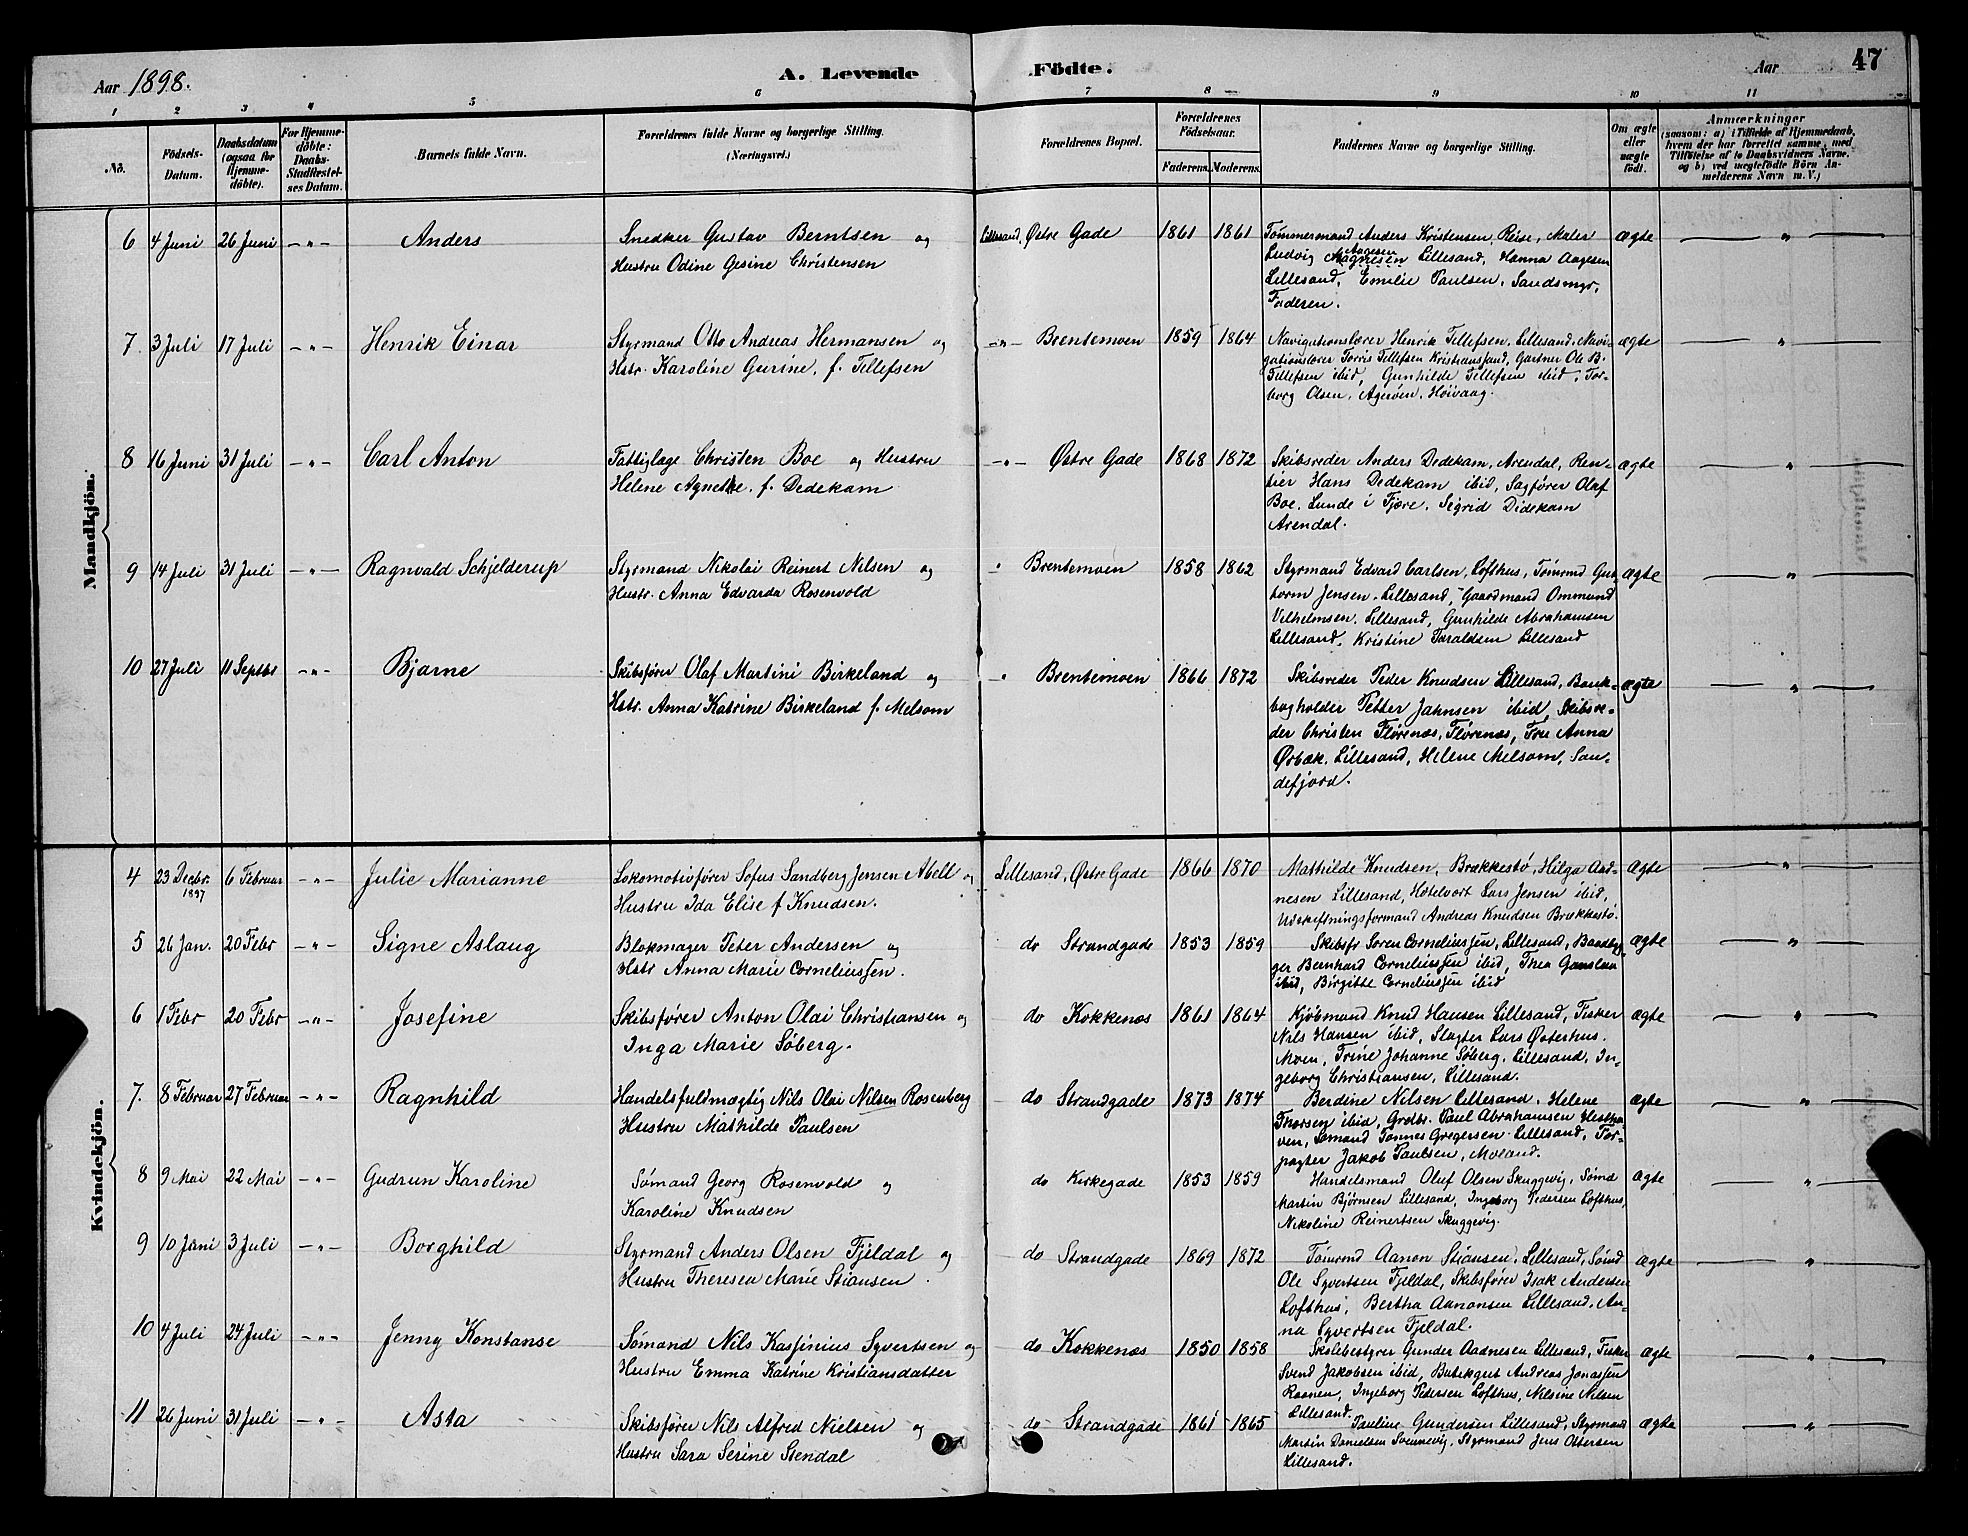 Aar 1898.
A. Levende Födte.
Aar
47
1 2 3 4 5 6 7 8 9 10 11
No.
Födsels-
Datum.
Daabsdatum
(ogsaa for
Hjemme-
döbte).
For Hjemme-
döbte:
Daabs-
Stadfæstel-
ses Datum.
Barnets fulde Navn.
Forældrenes fulde Navne og borgerlige Stilling.
(Næringsvei.)
Forældrenes Bopæl.
Forældrenes
Födselsaar.
Faderens. Moderens.
Faddernes Navne og borgerlige Stilling.
Om ægte
eller
uægte
födt.
Anmærkninger
(saasom: a) i Tilfælde af Hjemmedaab,
hvem der har forrettet samme, med
Tilföielse af to Daabsvidners Navne.
og b) ved uægtefödte Börn An-
melderens Navn m. V.)
Mandkjön.
6 4 Juni 26 Juni -"- Anders
Snedker Gustav Berntsen og
Hustru Odine Gesine Christensen
Lillesand, Østre Gade 1861 1861
Tømmermand Anders Kristensen, Reise, Maler
Aagesen
Ludvig Magnesen Lillesand, Hanna Aagesen
Lillesand, Emilie Paulsen, Sandsmyr,
Faderen.
ægte "
7. 3 Juli 17 Juli -"- Henrik Einar
Styrmand Otto Andreas Hermansen og
Hstr. Karoline Gurine, f. Tellefsen
-"- Brentemoen 1859 1864
Navigationslærer Henrik Tellefsen, Lillesand, Navi-
gationslærer Torris Tellefsen Kristianssand, Gartner Ole B.
Tellefsen ibid, Gunhilde Tellefsen ibid, Tor-
borg Olsen, Agerøen, Høivaag.
ægte "
8 16 Juni 31 Juli -"- Carl Anton
Fattiglæge Christen Boe og Hustru
Helene Agnethe, f. Dedekam
-"- Østre Gade 1868 1872
Skibsreder Anders Dedekam, Arendal, Ren-
tier Hans Dedekam ibid, Sagfører Olaf
Boe, Lunde i Fjære, Sigrid Didekam
Arendal.
ægte "
9 14 Juli 31 Juli -"- Ragnvald Schjelderup
Styrmand Nikolai Reinert Nilsen og
Hustr. Anna Edvarda Rosenvold
" Brentemoen 1858 1862
Styrmand Edvard Carlsen, Lofthus, Tømrmd Gut-
torm Jensen, Lillesand, Gaardmand Ommund
Vilhelmsen, Lillesand, Gunhilde Abrahamsen
Lillesand, Kristine Taraldsen Lillesand
ægte "
10 27 Juli 11 Septbr -"- Bjarne
Skibsfører Olaf Martini Birkeland og
Hstr. Anna Katrine Birkeland f. Melsom
" Brentemoen 1866 1872
Skibsreder Peder Knudsen Lillesand, Bank-
bogholder Petter Jahnsen ibid, Skibsre-
der Christen Flørenæs, Flørenæs, Fru Anna
Ørbæk, Lillesand, Helene Melsom, San-
defjord.
ægte "
Kvindekjön.
4 23 Decbr. 6 Februar -"- Julie Marianne
1897
Lokomotivfører Sofus Sandberg Jensen Abell og
Hustru Ida Elise f Knudsen.
Lillesand, Østre Gade 1866 1870
Mathilde Knudsen, Brækkestø, Helga Aad-
nesen Lillesand, Hotelvært Lars Jensen ibid,
Udskiftningsformand Andreas Knudsen Brækkestø.
ægte "
5 26 Jan. 20 Febr -"- Signe Aslaug
Blokmager Peter Andersen og
Hstr Anna Marie Corneliussen.
do Strandgade 1853 1859
Skibsfr Søren Corneliussen, Lillesand, Baadbyg-
ger Bernhard Corneliussen ibid, Thea
ibid, Birgitte Corneliussen ibid
ægte "
6 1 Febr 20 Febr -"- Josefine
Skibsfører Anton Olai Christiansen og
Inga Marie Søberg.
do Kokkenæs 1861 1864
Kjøbmand Knud Hansen Lillesand, Fisker
Nils Hansen ibid, Slagter Lars Østerhus.
Moen, Trine Johanne Søberg, Lillesand, In-
geborg Christiansen, Lillesand.
ægte "
7. 8 Februar 27 Februar -"- Ragnhild
Handelsfuldmægtig Nils Olai Nilsen Rosenberg
Hustru Mathilde Paulsen
do Strandgade 1873 1874
Berdine Nilsen Lillesand, Helene
Thorsen ibid, Grdbr. Paul Abrahamsen Hestha-
ven, Sømand Tønnes Gregersen Lillesand, For-
pagter Jakob Paulsen, Moland.
ægte "
8 9 Mai 22 Mai -"- Gudrun Karoline
Sømand Georg Rosenvold og
Karoline Knudsen
do Kirkegade 1853 1859
Handelsmand Oluf Olsen Skuggevig, Sømd
Martin Bjørnsen Lillesand, Ingeborg Pedersen Lofthus,
Nikoline Reinertsen Skuggevig.
ægte "
9 10 Juni 3 Juli -"- Borghild
Styrmand Anders Olsen Fjeldal og
Hustru Theresea Marie Stiansen.
do Strandgade 1869 1872
Tømrmd Aanon Stiansen, Lillesand, Sømd
Ole Syvertsen Fjeldal, Skibsfører Isak Andersen
Lofthus, Bertha Aanonsen Lillesand, An-
na Syvertsen Fjeldal.
ægte "
10 4 Juli 24 Juli -"- Jenny Konstanse
Sømand Nils Kasfinius Syvertsen og
Hustru Emma Katrine Kristiansdatter
do Kokkenæs 1850 1858
Skolebestyrer Gunder Aadnesen Lillesand, Fisker
Svend Jakobsen ibid, Andreas Jonassen
Ingeborg Pedersen Lofthus, Nilsine Nilsen
Lillesand.
ægte "
11 26 Juni 31 Juli -"- Asta
Skibsfører Nils Alfred Nielsen og
Hustru Sara Serine Stendal
do Strandgade 1861 1865
Pauline Gundersen Lillesand, Styrmand
Martin Danielsen Svennevig, Styrmand Jens Ottersen
Lillesand.
ægte "